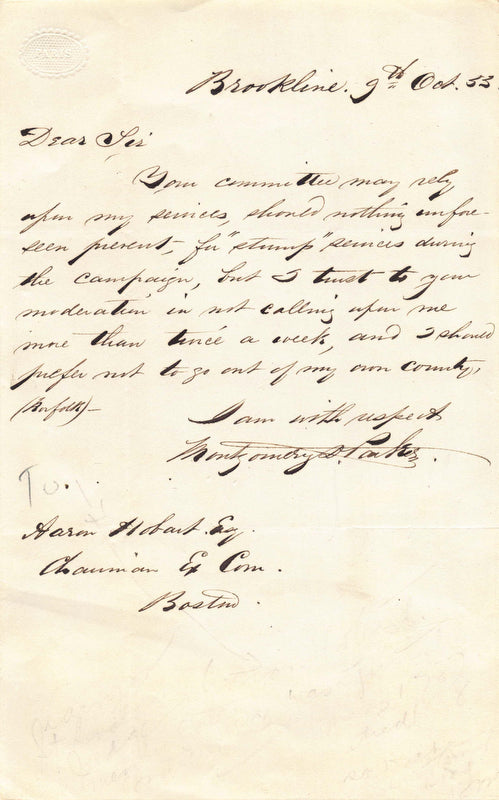 Brookline. 9th Oct. 55.
Dear Sir
Your committee may rely
upon my services, should nothing unfore-
seen prevent, for "stump" services during
the campaign, but I trust to your
moderation in not calling upon me
more than twice a week, and I should
prefer not to go out of my own county,
(Norfolk)—
I am with respect
Montgomery D. Parker.
To.
Aaron Hobart. Esq.
Chairman Ex Com.
Boston.